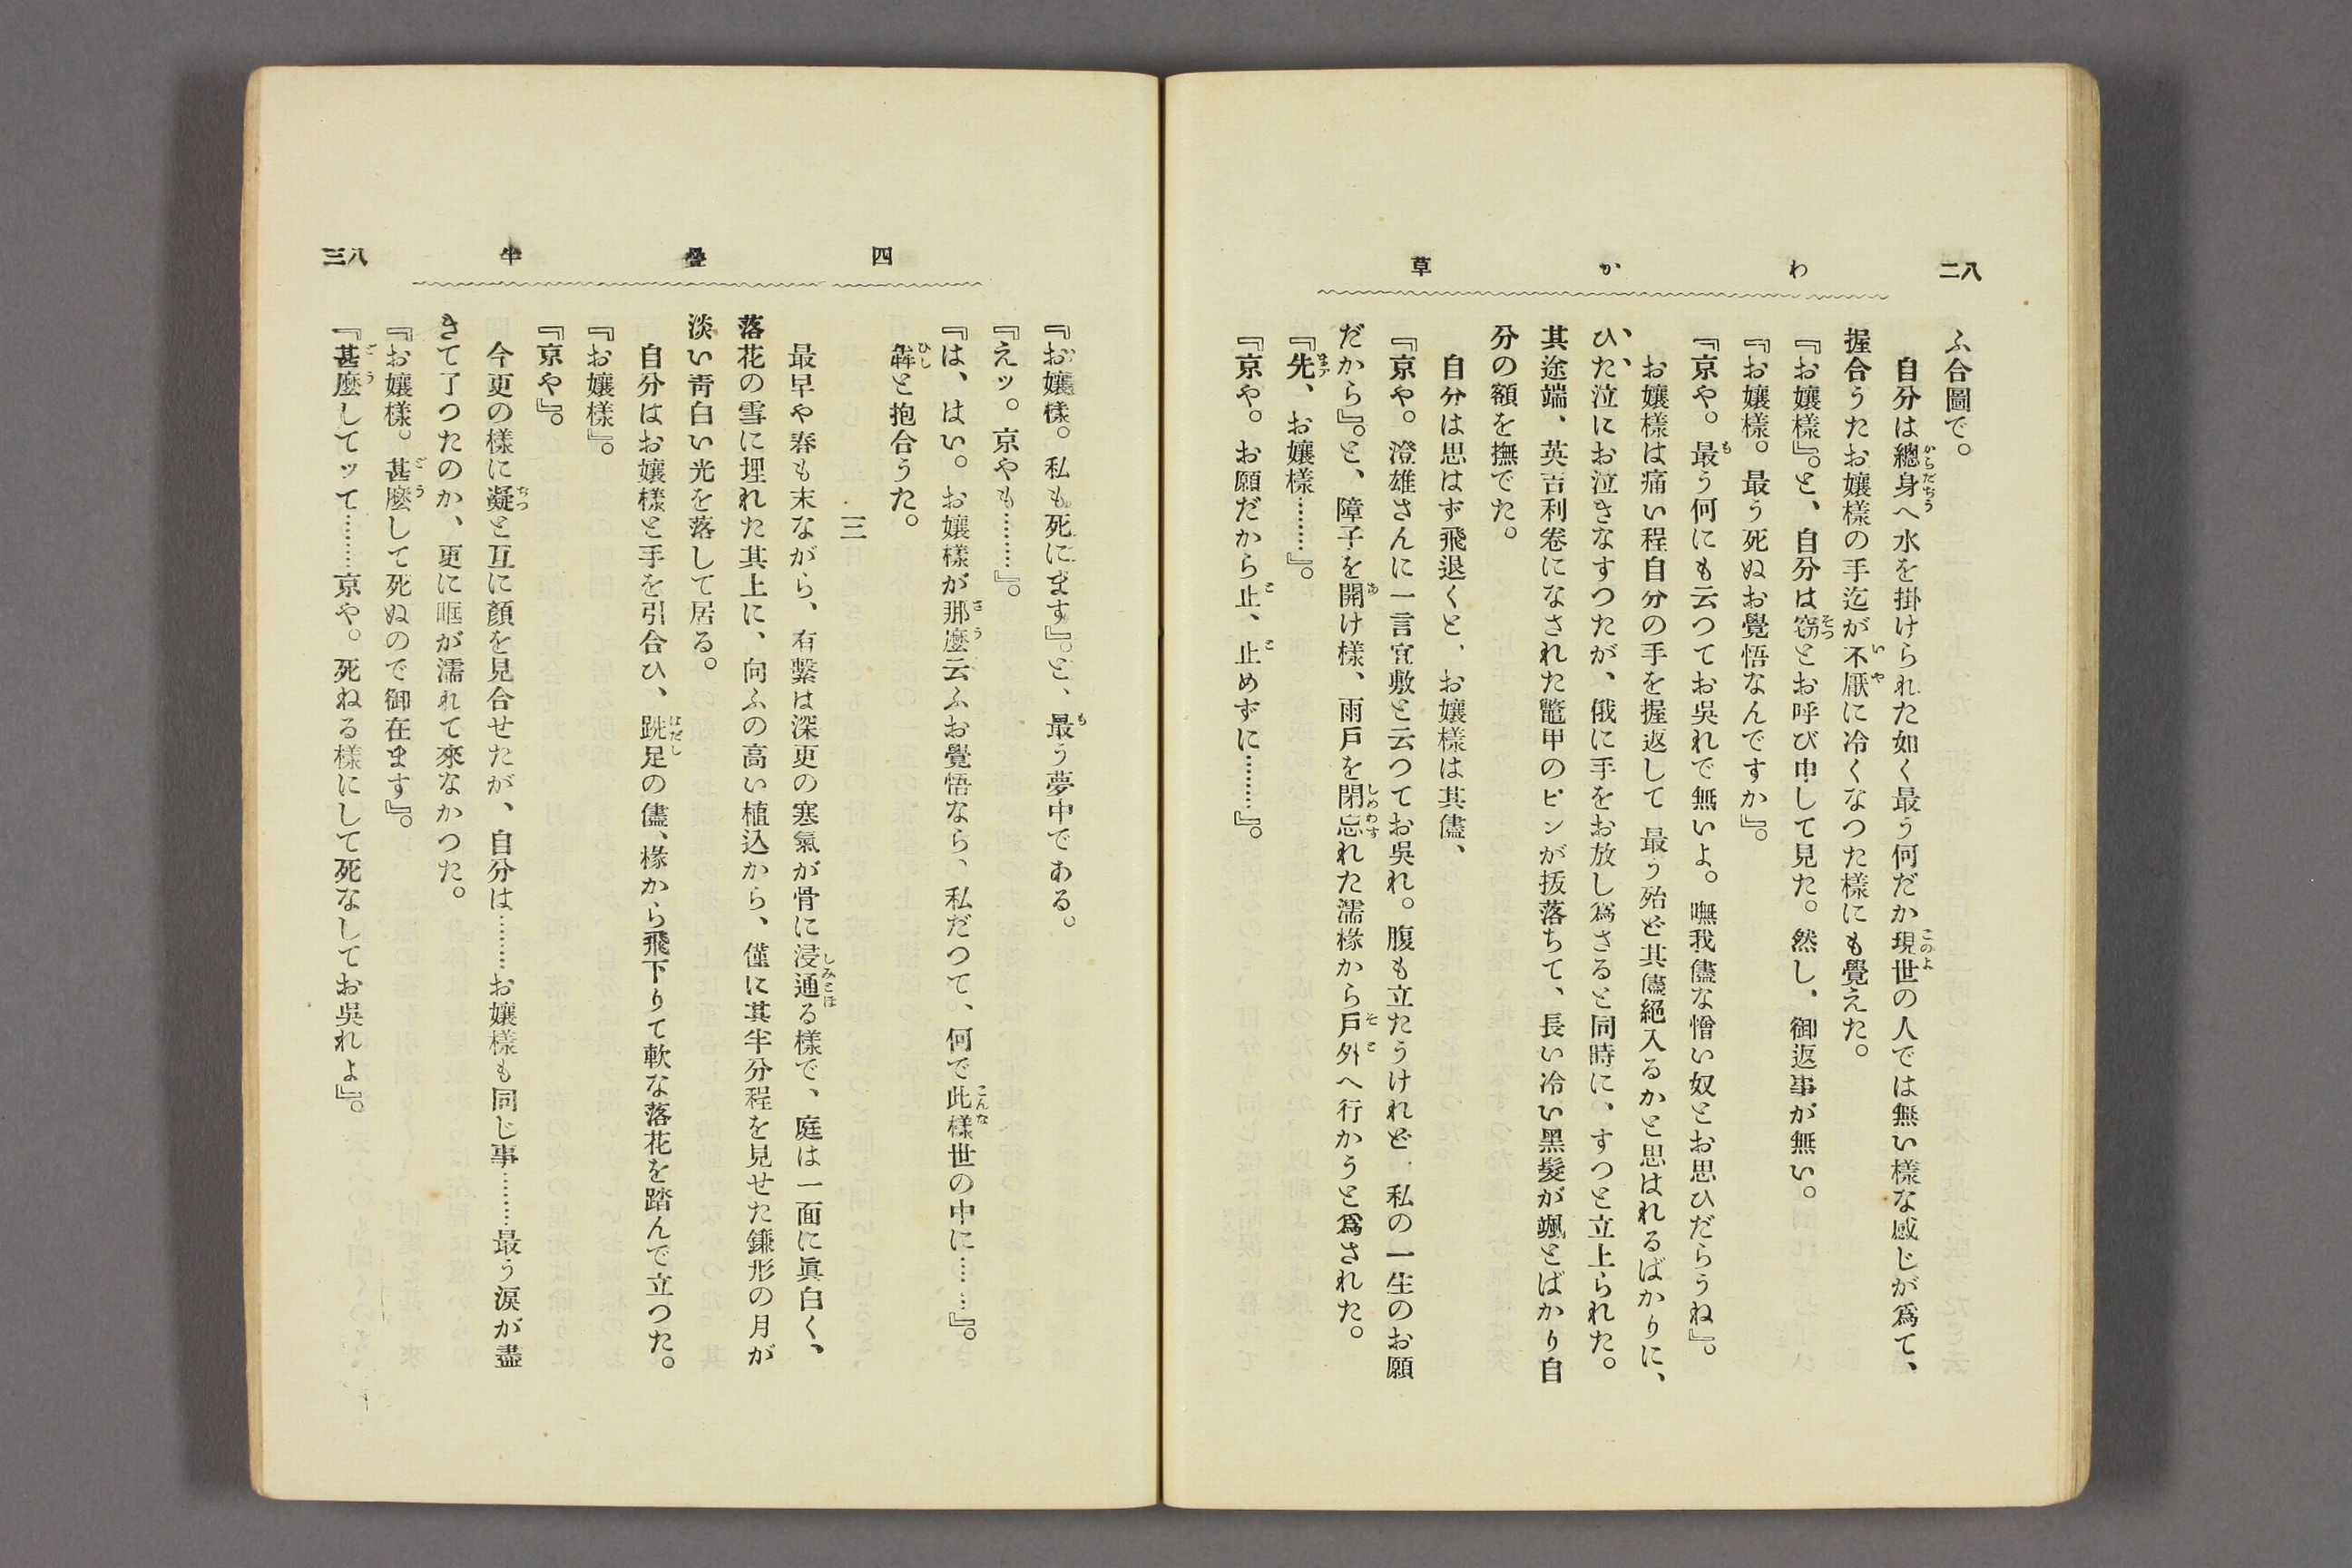 八二
わか草
ふ合圖で。
自分は總身へ水を掛けられた如く最う何だか現世の人では無い樣な感じが爲て、
握合うたお孃樣の手迄が不厭に冷くなつた樣にも覺えた。
『お孃樣』。と、自分は窃とお呼び申して見た。然し、御返事が無い。
『お孃樣。最う死ぬお覺悟なんですか』。
『京や。最う何にも云つてお吳れで無いよ。嘸我儘な憎い奴とお思ひだらうね』。
お孃樣は痛い程自分の手を握返して 最う殆ど其儘絕入るかと思はれるばかりに、
ひた泣にお泣きなすつたが、俄に手をお放し爲さると同時に、すつと立上られた。
其途端、英吉利卷になされた鼈甲のピンが拔落ちて、長い冷い黑髮が颯とばかり自
分の額を撫でた。
自分は思はず飛退くと、お孃樣は其儘、
『京や。澄雄さんに一言宜敷と云つてお吳れ。腹も立たうけれど、私の一生のお願
だから』。と、障子を開け樣、雨戶を閉忘れた濡椽から戶外へ行かうと爲された。
『先、お孃樣………』。
『京や。お願だから止、止めずに………』。
四疊半
八三
『お孃樣。私も死にます』。と、最う夢中である。
『えッ。京やも………』。
『は、はい。お孃樣が那麼云ふお覺悟なら、私だつて、何で此樣世の中に………』。
犇と抱合うた。
三
最早や春も末ながら、有繫は深更の寒氣が骨に浸通る樣で、庭は一面に眞白く、
落花の雪に埋れた其上に、向ふの高い植込から、僅に其半分程を見せた鎌形の月が
淡い靑白い光を落して居る。
自分はお孃樣と手を引合ひ、跣足の儘、椽から飛下りて軟な落花を踏んで立つた。
『お孃樣』。
『京や』。
今更の樣に凝と互に顏を見合せたが、自分は………お孃樣も同じ事………最う淚が盡
きて了つたのか、更に眶が濡れて來なかつた。
『お孃樣。甚麼して死ぬので御在ます』。
『甚麼してッて………京や。死ねる樣にして死なしてお吳れよ』。